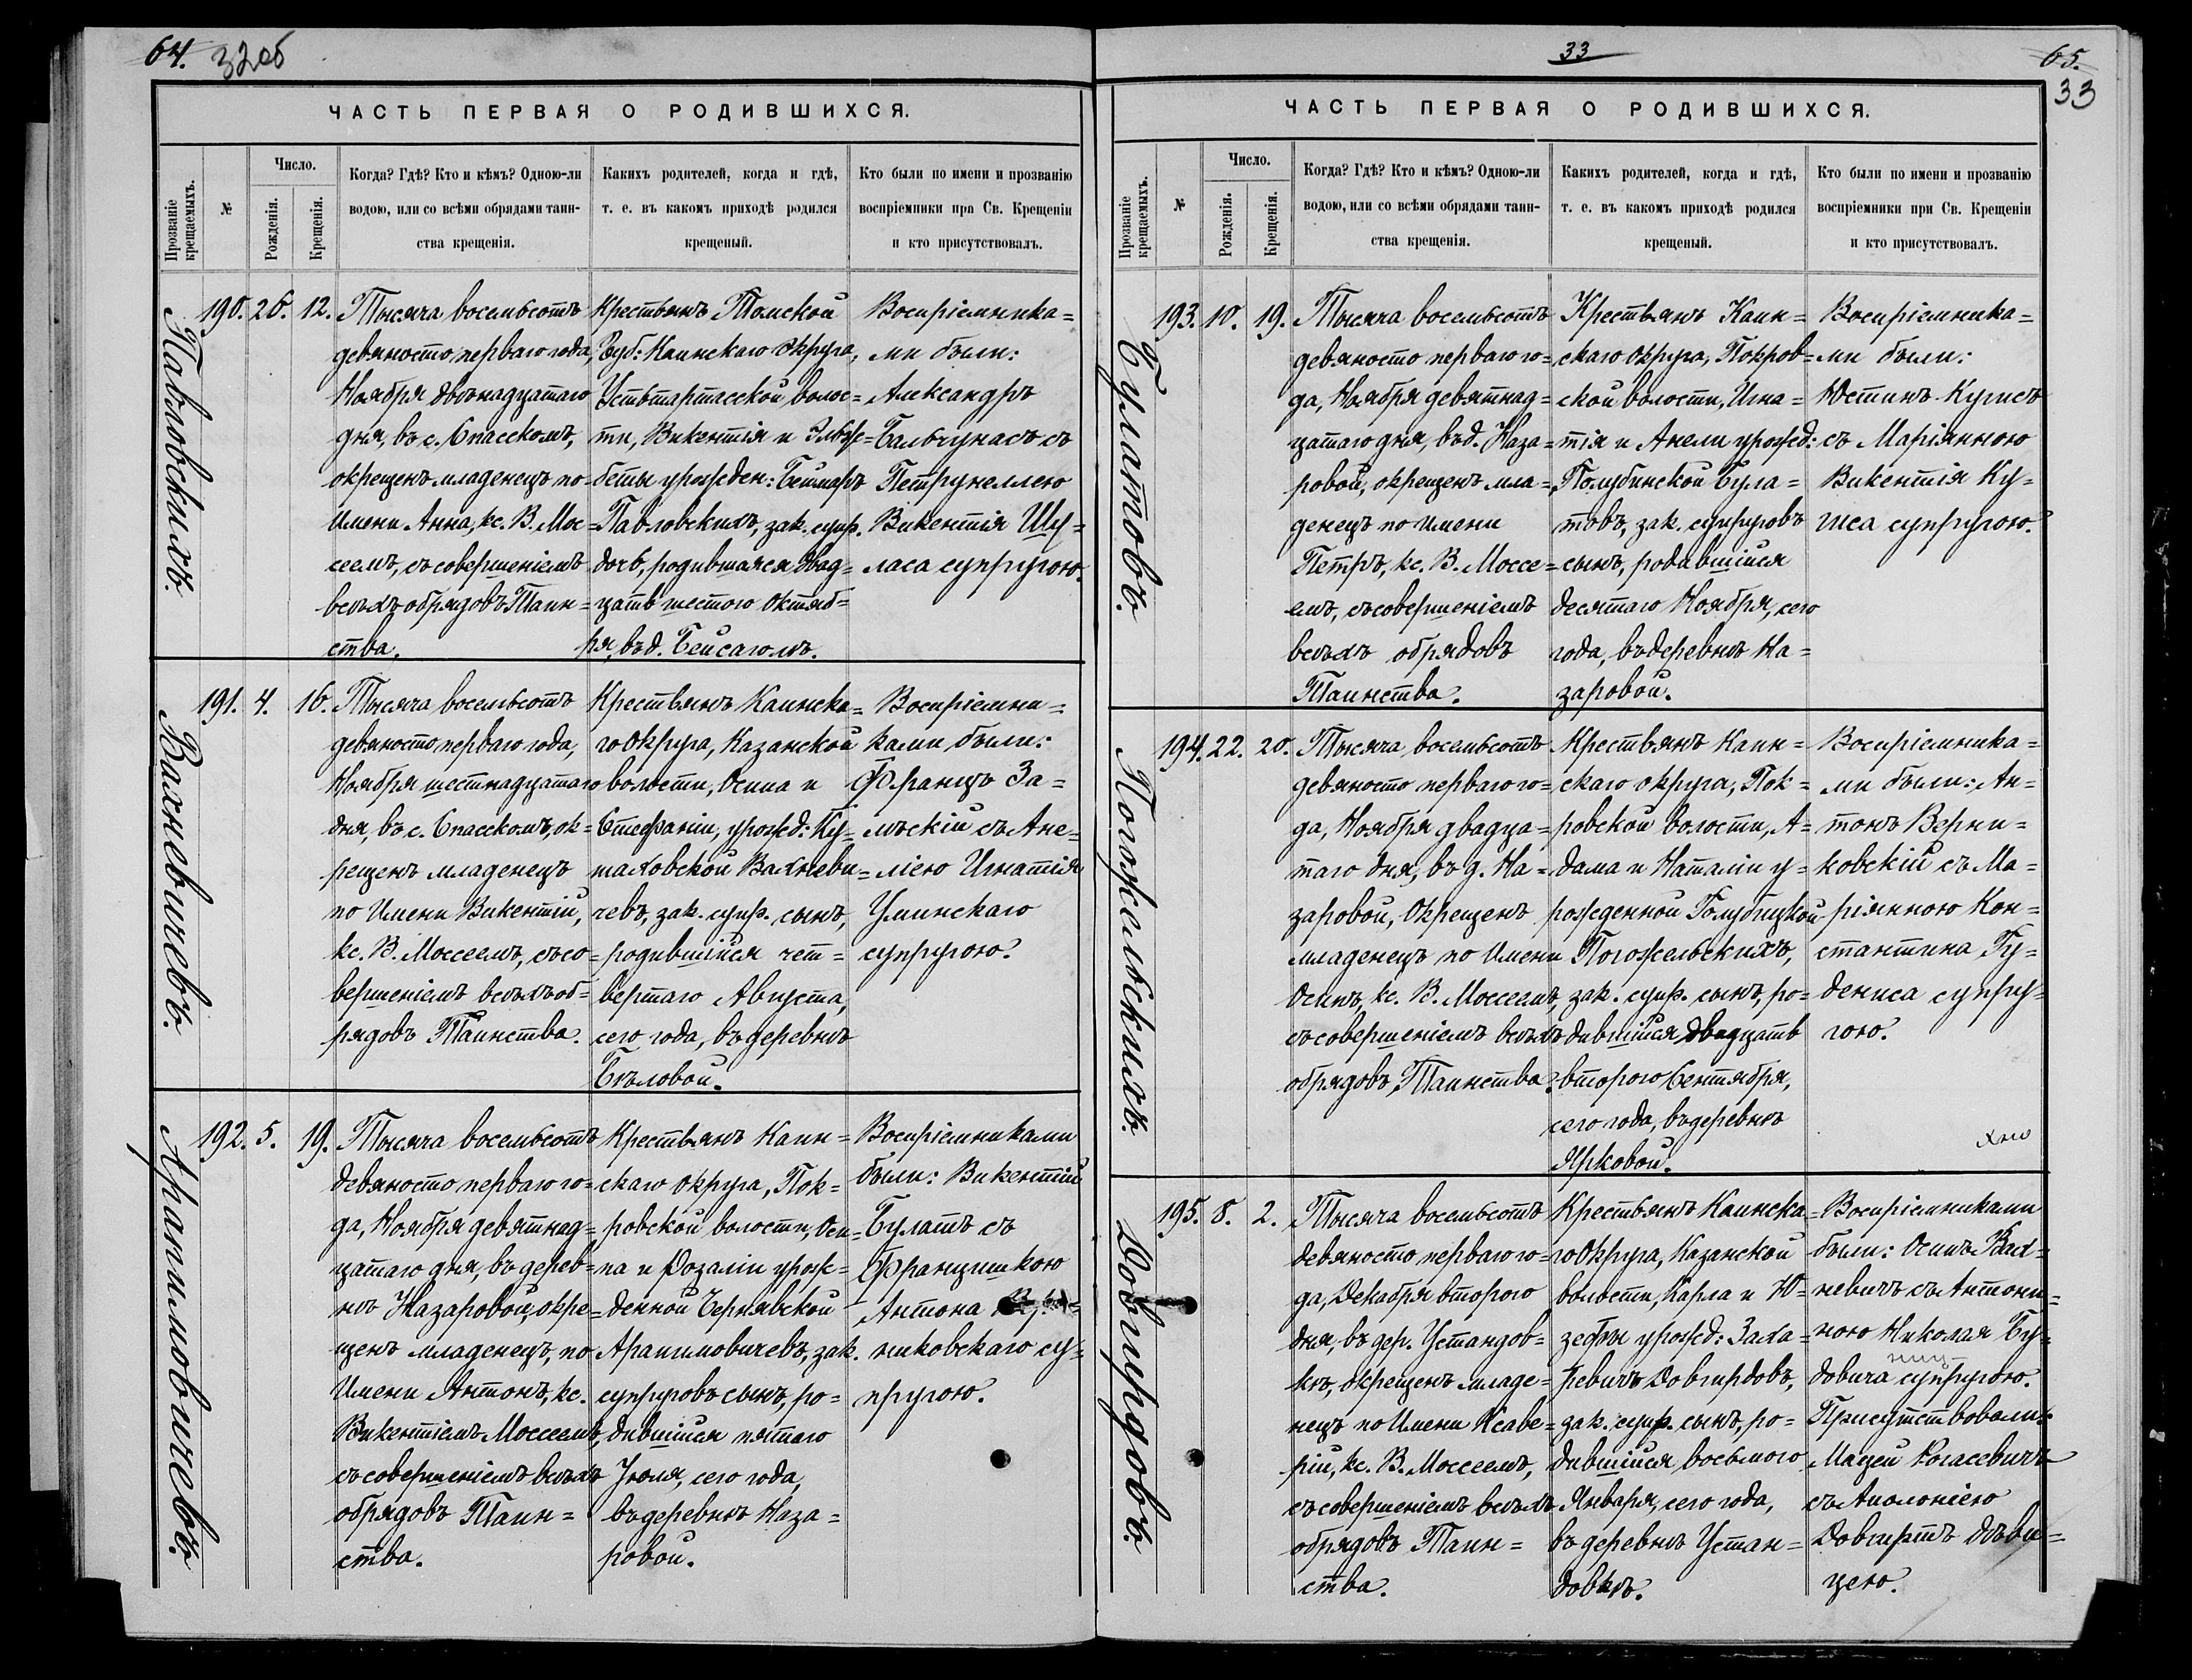 64. 32об
ЧАСТЬ ПЕРВАЯ О РОДИВШИХСЯ.
Прозваніе крещаемыхъ.
№
Число.
Рожденія.
Крещенія.
Когда? Гдѣ? Кто и кѣмъ? Одною-ли
водою, или со всѣми обрядами таин-
ства крещенія.
Какихъ родителей, когда и гдѣ,
т. е. въ какомъ приходѣ родился
крещеный.
Кто были по имени и прозванію
воспріемники при Св. Крещеніи
и кто присутствовалъ.
Павловскихъ.
190. 26. 12.
Тысяча восемьсотъ
девяносто перваго года,
Ноября двѣнадцатаго
дня, въ с. Спасскомъ,
окрещенъ младенецъ по
Имени Анна, кс. В. Мос=
сеемъ, съ совершеніемъ
всѣхъ обрядовъ Таин=
ства.
Крестьянъ Томской
Губ: Каинскаго округа,
Устьтартасской волос=
ти, Викентія и Эльж=
беты урожден:
Павловскихъ, зак. супр.
дочь, родившаяся двад=
цать шестого октяб=
ря, въ д.
Воспріемника=
ми были:
Александръ
Бальчунасъ съ
Петрунеллею
Викентія Шу=
ласа супругою.
Вахневичевъ.
191. 4. 16.
Тысяча восемьсотъ
девяносто перваго года,
Ноября шестнадцатаго
дня, въ с. Спасскомъ, ок=
рещенъ младенецъ
по Имени Викентій,
кс. В. Моссеемъ, съ со=
вершеніемъ всѣхъ об=
рядовъ Таинства.
Крестьянъ Каинска=
го округа, Казанской
волости, Осипа и
Стефаніи, урожд: Ку=
маховской Вахневи=
чевъ, зак. супр. сынъ,
родившійся чет=
вертаго Августа,
сего года, въ деревнѣ
Бѣловой.
Воспріемни=
ками были:
Францъ За=
лѣскій съ Ане=
ліею Игнатія
Уминскаго
супругою.
Арапимовичевъ.
192. 5. 19.
Тысяча восемьсотъ
девяносто перваго го=
да, Ноября девятнад=
цатаго дня, въ дерев=
нѣ Назаровой, окре=
щенъ младенецъ, по
Имени Антонъ, кс.
Викентіемъ Моссеемъ,
съ совершеніемъ всѣхъ
обрядовъ Таин=
ства.
Крестьянъ Каин=
скаго округа, Пок=
ровской волости, Оси=
па и Розаліи урож=
денной Чернявской
Арапимовичевъ, зак.
супруговъ сынъ, ро=
дившійся пятаго
Іюля, сего года,
въ деревнѣ Наза=
ровой.
Воспріемниками
были: Викентій
Булатъ съ
Францишкою
Антона
никовскаго су=
пругою.
33 65.
33
ЧАСТЬ ПЕРВАЯ О РОДИВШИХСЯ.
Прозваніе крещаемыхъ.
№
Число.
Рожденія.
Крещенія.
Когда? Гдѣ? Кто и кѣмъ? Одною-ли
водою, или со всѣми обрядами таин-
ства крещенія.
Какихъ родителей, когда и гдѣ,
т. е. въ какомъ приходѣ родился
крещеный.
Кто были по имени и прозванію
воспріемники при Св. Крещеніи
и кто присутствовалъ.
Булатовъ.
193. 10. 19.
Тысяча восемьсотъ
девяносто перваго го=
да, Ноября девятнад=
цатаго дня, въ д. Наза=
ровой, окрещенъ мла=
денецъ по имени
Петръ, кс. В. Моссе=
емъ, съ совершеніемъ
всѣхъ обрядовъ
Таинства.
Крестьянъ Каин=
скаго округа, Покров=
ской волости, Игна=
тія и Анели урожд:
Голубинской Була=
товъ, зак. супруговъ
сынъ, родившійся
десятаго Ноября, сего
года, въ деревнѣ На=
заровой.
Воспріемника=
ми были:
Юстинъ Кугисъ
съ Маріянною
Викентія Ку=
гиса супругою.
Погожельскихъ.
194. 22. 20.
Тысяча восемьсотъ
девяносто перваго го=
да, Ноября двадца=
таго дня, въ д. На=
заровой, Окрещенъ
младенецъ по Имени
Осипъ, кс. В. Моссеемъ,
съ совершеніемъ всѣхъ
обрядовъ Таинства.
Крестьянъ Каин=
скаго округа, Пок=
ровской волости, А=
дама и Наталіи у=
рожденной Голубицкой
Погожельскихъ,
зак. супр. сынъ, ро=
дившійся двадцать
второго Сентября,
сего года, въ деревнѣ
Ярковой.
Воспріемника=
ми были: Ан=
тонъ Верни=
ковскій съ Ма=
ріянною Кон=
стантина Гу=
дениса супру=
гою.
Довгирдовъ.
195. 8. 2.
Тысяча восемьсотъ
девяносто перваго го=
да, Декабря второго
дня, въ дер. Устандов=
кѣ, окрещенъ младе=
нецъ по Имени Ксаве=
рій, кс. В. Моссеемъ,
съ совершеніемъ всѣхъ
обрядовъ Таин=
ства.
Крестьянъ Каинска=
го Округа, Казанской
волости, Карла и Ю=
зефы урожд: Заха=
ревичъ Довгирдовъ,
зак. супр. сынъ, ро=
дившійся восьмого
Января, сего года,
въ деревнѣ Устан=
довкѣ.
Воспріемниками
были: Осипъ Вах=
невичъ съ Антони=
ною Николая Бу=
довича супругою.
Присутствовали:
Мацей Рогасевичъ
съ Аполоніею
Довгиртъ дѣви=
цею.